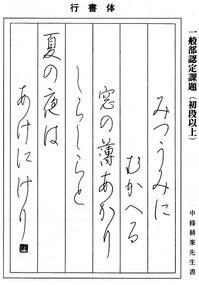 行書体
一般部認定課題（初段以上）
みつうみに
むかへる
窓の薄あかり
しらしらと
夏の夜は
あけにけり
中條耕峯先生書